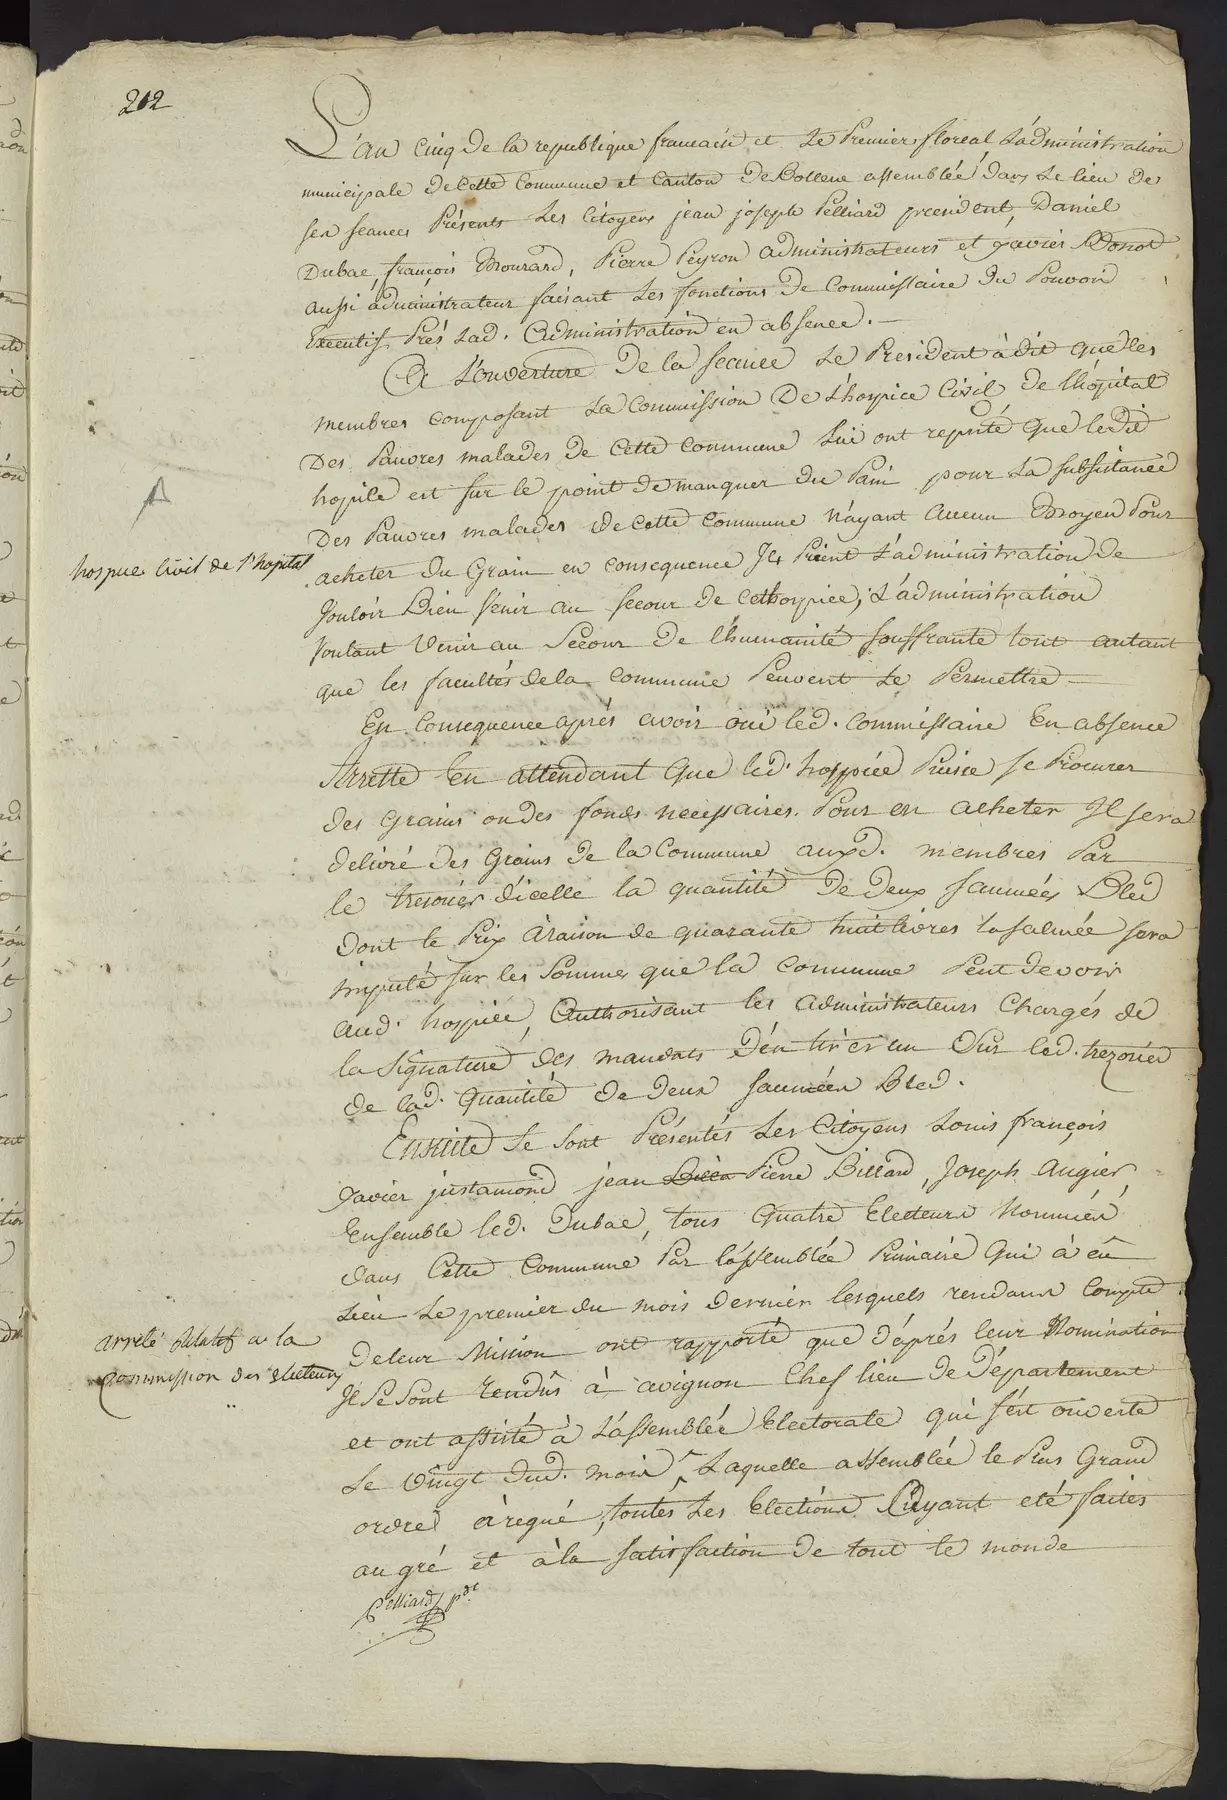 212
L'an cinq de la republique francaise et Le Premier floreal L'administration
municipale de cette Commune et Canton de Bollene assemblée dans Le lieu de
ses seances Présents Les Citoyens jean joseph Pelliard president, Daniel
Dubac, françois Mourard, Pierre Peyron administrateurs et xavier Monot
aussi administrateur faisant Les fonctions de Commissaire du Pouvoir
Executif Prés Lad. Administration en absence.
A L'ouverture De la seance Le President à dit que les
membres composant La Commission De L'hospice Civil de l'hôpital
Des Pauvres malades de cette commune Lui ont reporté que ledit
hospice est sur le point de manquer du Pain pour La subsistance
Des Pauvres malades de cette commune n'ayant aucun Moyen Pour
acheter du Grain en consequence Ils Prient L'administration de
Vouloir Bien Venir au secour de cet hospice; L'administration
Voulant Venir au Secour de l'humanité souffrante tout autant
que les facultés de la commune Peuvent Le Permettre
En Consequence aprés avoir oui led. commissaire En absence
Arrette En attendant que led. hospice Puisse se Procurer
des grains ou des fonds necessaires Pour en acheter Il sera
délivré des Grains de la Commune auxd. membres Par
le tresorier d'icelle la quantité de Deux saumées Bled
dont le Prix à raison de quarante huit livres la salmée sera
imputé sur les Sommes que la Commune Peut devoir
aud. hospice, Authorisant les administrateurs Chargés de
la Signature des mandats d'en tirer un Sur led. trezorier
de lad. quantité de deux saumées Bled.
Ensuite se sont Présentés Les Citoyens Louis françois
xavier justamond jean Pierre Billard, Joseph Augier,
Ensemble led. Dubac, tous quatre Electeurs Nommés
dans Cette Commune Par l'assemblée Primaire Qui à eû
Lieu Le premier du mois dernier lesquels rendant Compte
de leur Mission ont rapporté que d'aprés leur Nomination
Il Se Sont rendûs à avignon Chef lieu de Département
et ont assisté à L'assemblée Electorale qui s'est ouverte
Le Vingt dud. mois Laquelle assemblée le Plus Grand
ordre à regné, toutes Les Elections Ayant eté faites
au gré et à la satisfaction de tout le monde
Pelliard pdt
A
hospice Civil de l'hopital
arreté Rélatif a la
Commission des electeurs